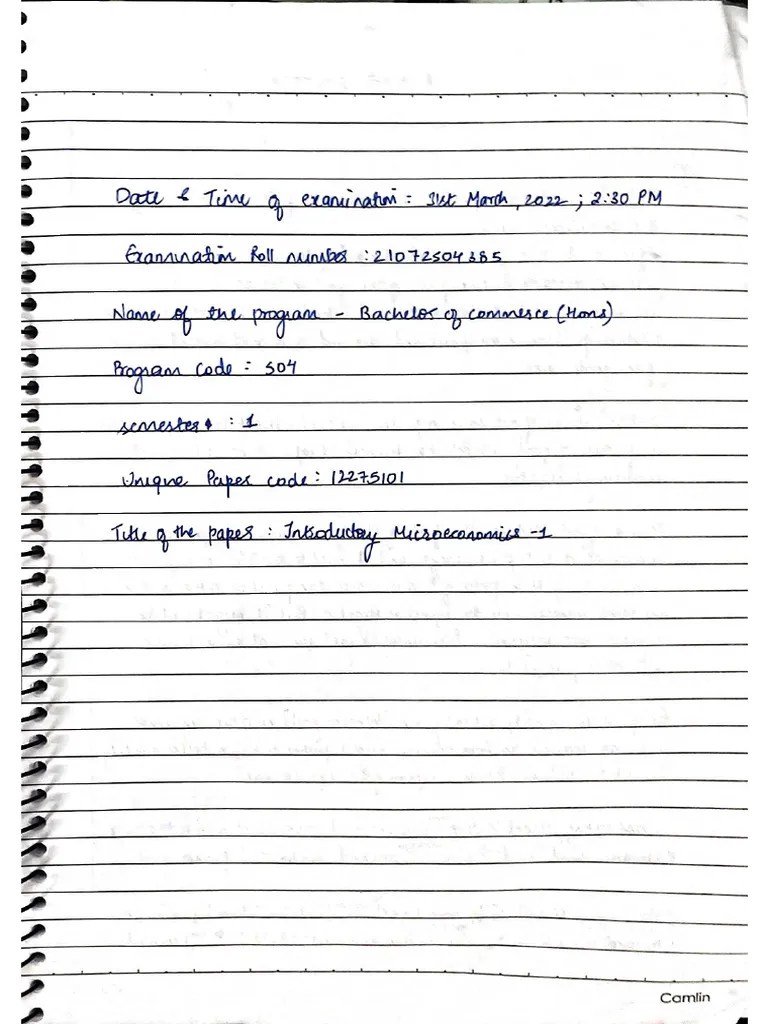 Date & Time of examination : 31st March, 2022 ; 2:30 PM
Examination Roll number : 21072504385
Name of the program - Bachelor of commerce (Hons)
Program Code : 504
semester : 1
Unique Paper code : 12275101
Title of the paper : Introductory Microeconomics -1
Camlin